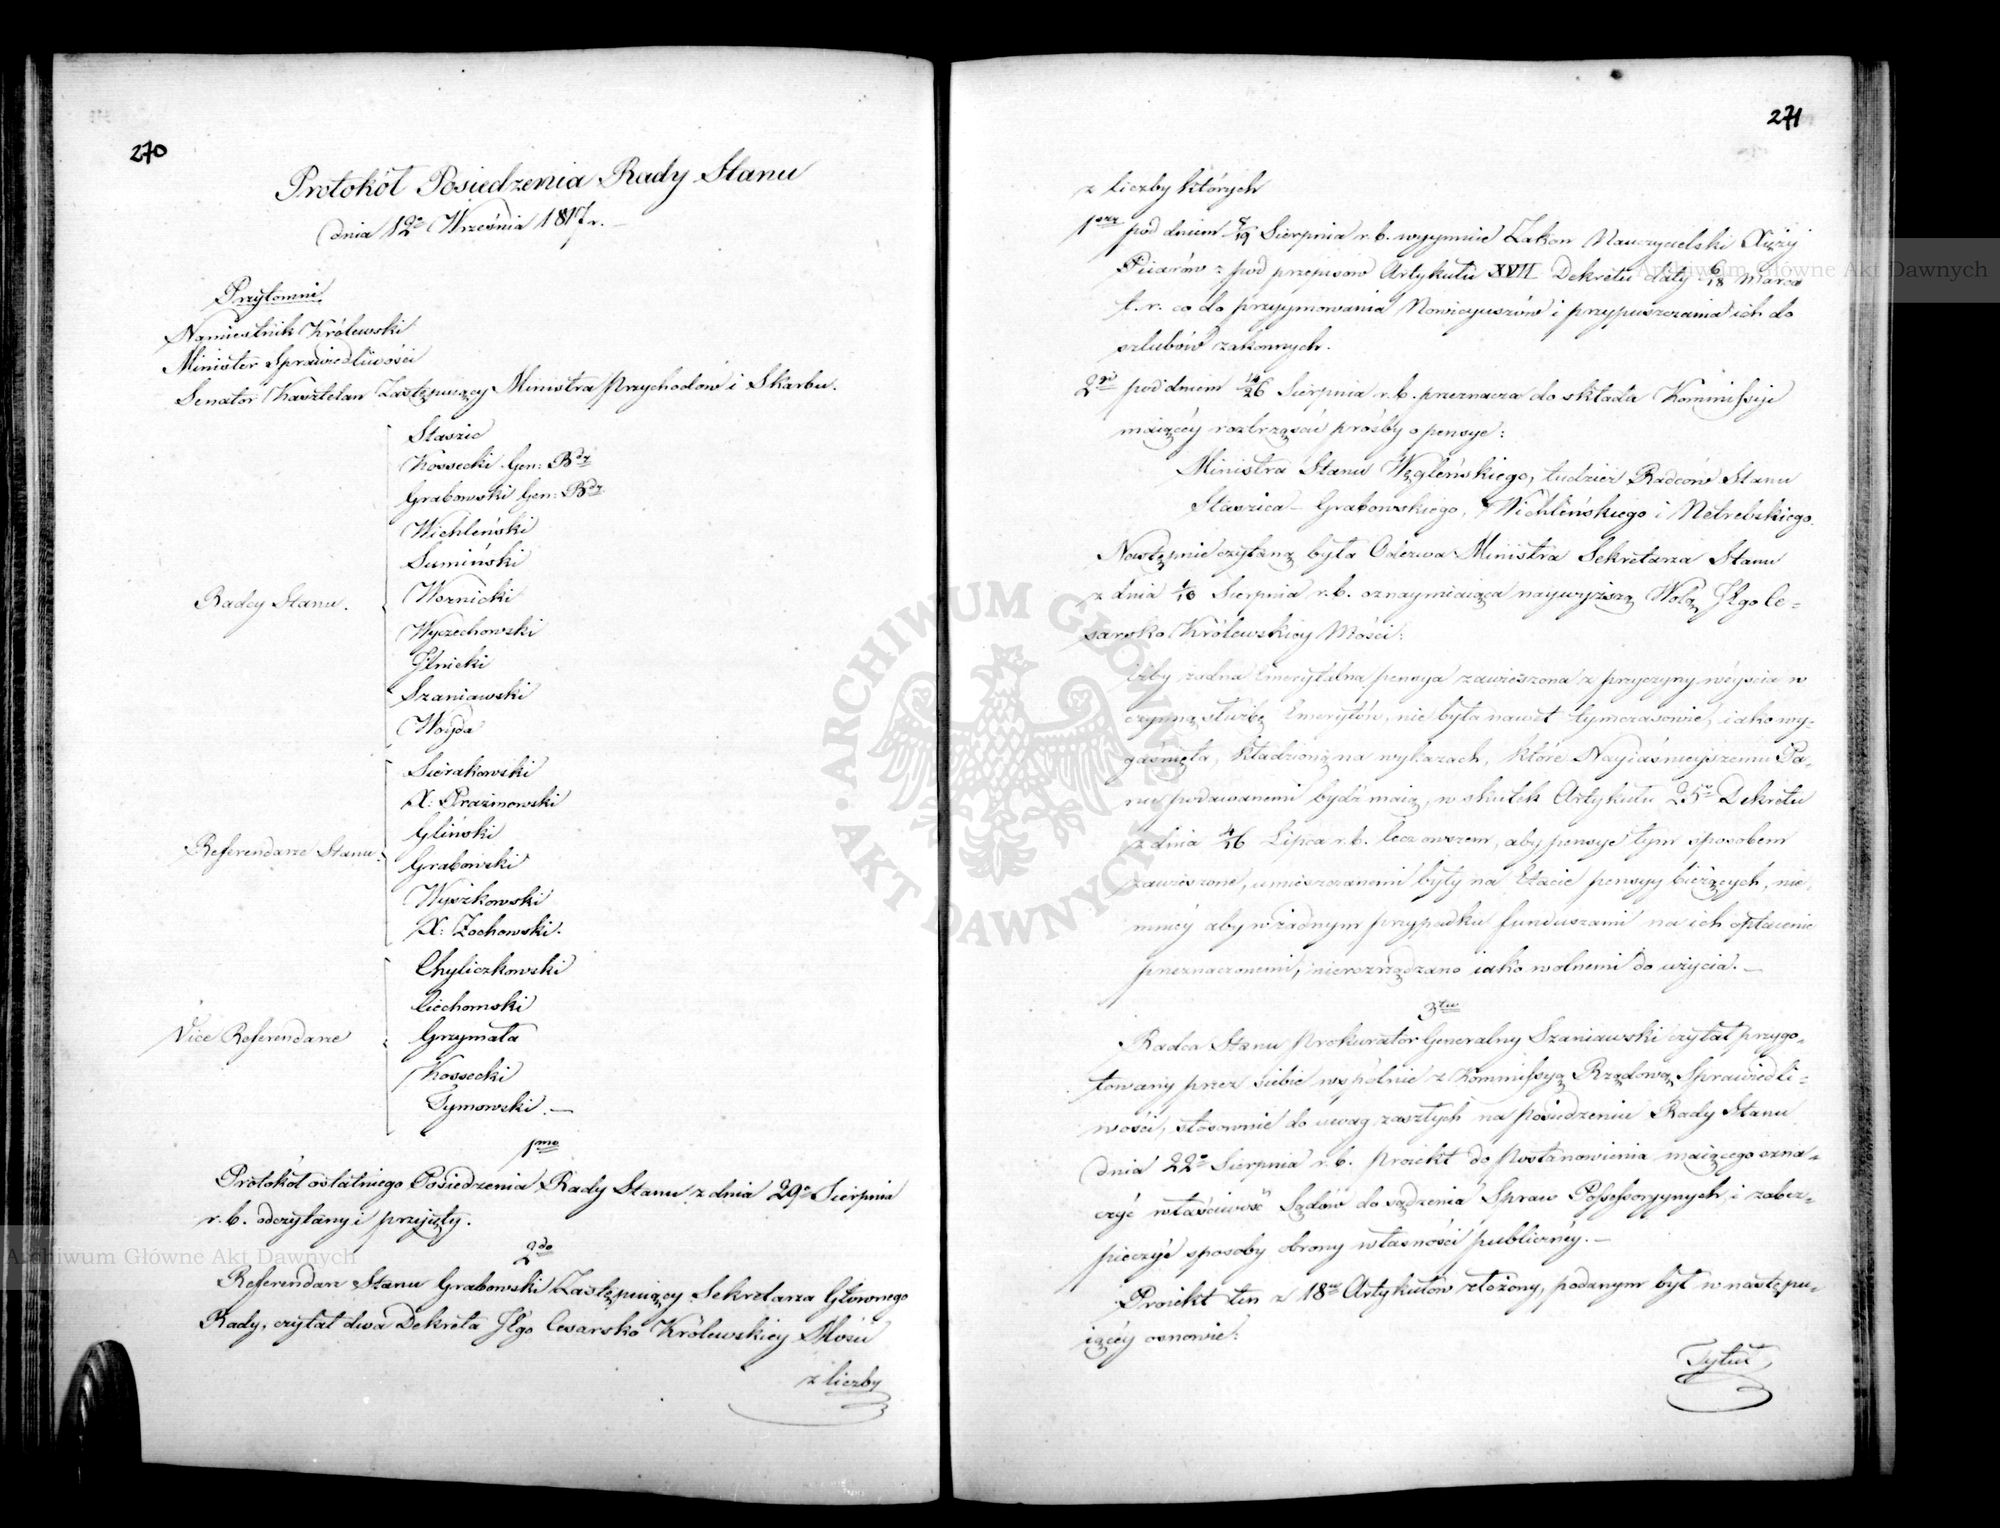 270
Protokół Posiedzenia Rady Stanu
dnia 12go Września 1817 r.
Przytomni
Namiestnik Królewski
Minister Sprawiedliwości
Senator Kasztelan Zastępuiący Ministra Przychodów i Skarbu.
Radcy Stanu.
Staszic
Kossecki Gen: Bdy
Grabowski Gen: Bdy
Wichliński
Sumiński
Woznicki
Wyczechowski
Szaniawski
Woyda
Referendarze Stanu.
Sierakowski
X: Prażmowski
Gliński
Grabowski
Wyszkowski
X: Zochowski.
Vice Referendarze
Chyliczkowski
Ciechomski
Grzymała
Kossecki
Tymowski. —
1mo
Protokół ostatniego Posiedzenia Rady Stanu z dnia 29go Sierpnia
r. b. odczytany i przyięty.
2do
Referendarz Stanu Grabowski Zastępuiący Sekretarza Głównego
Rady, czytał dwa Dekreta JEgo Cesarsko Królewskiey Mości
z liczby
271
z liczby których
1szy pod dniem 7/19 Sierpnia r. b. wyymuie Zakon Nauczycielski Xięży
Piiarów z pod przepisów Artykułu XVII Dekretu daty 6/18 Marca
t. r. co do przyymowania Nowicyuszów i przypuszczania ich do
szlubów zakonnych.
2gi pod dniem 14/26 Sierpnia r. b. przeznacza do składu Kommissyi
maiącéy roztrząsać prośby o pensye:
Ministra Stanu Węgleńskiego, tudzież Radców Stanu
Staszica – Grabowskiego, Wichlińskiego i Netrebskiego.
Następnie czytaną była Odezwa Ministra Sekretarza Stanu
z dnia Sierpnia r. b. oznaymiaiąca naywyższą Wolą JEgo Ce-
sarsko Królewskiey Mości:
iżby żadna Emerytalna pensya zawieszona z przyczyny wéyścia w
czynną służbę Emerytów, nie była nawet tymczasowie, iako wy-
gasnięta, kładzioną na wykazach, które Nayiaśnieyszemu Pa-
nu podawanemi bydź maią, w skutek Artykułu 25go Dekretu
z dnia 4/16 Lipca r. b. lecz owszem, aby pensye tym sposobem
zawieszone, umieszczanemi były na Etacie pensyy bieżących, nie
mniéy aby w żadnym przypadku funduszami na ich opłacenie
przeznaczonemi, nierozrządzano iako wolnemi do użycia. —
3tio
Radca Stanu Prokurator Generalny Szaniawski czytał przygo-
towany przez siebie wspólnie z Kommissyą Rządową Sprawiedli-
wości, stosownie do uwag zaszłych na Posiedzeniu Rady Stanu
dnia 22go Sierpnia r. b. Proiekt do Postanowienia maiącego ozna-
czyć właściwość Sądów do sądzenia Spraw Possessoryynych, i zabez-
pieczyć sposoby obrony własności publicznéy. —
Proiekt ten z 18tu Artykułów złożony, podanym był w następu-
iącéy osnowie:
Tytuł
Archiwum Główne Akt Dawnych
Archiwum Główne Akt Dawnych
ARCHIWUM GŁÓWNE AKT DAWNYCH